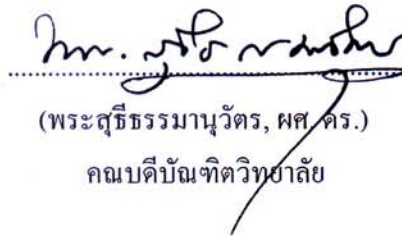 (พระสุธีธรรมานุวัตร, ผศ. ดร.)
คณบดีบัณฑิตวิทยาลัย